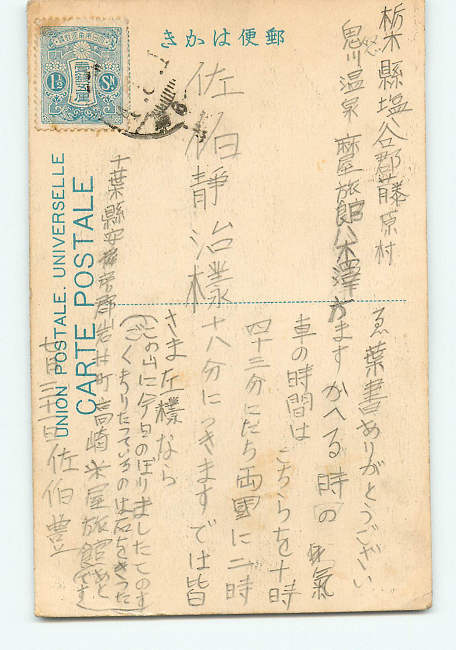 郵便はかき
UNION POSTALE UNIVERSELLE
CARTE POSTALE
1½ Sn
栃木縣塩谷郡藤原村
鬼川温泉 麻屋旅館八木澤方
佐伯靜治樣
千葉縣安房郡岩井町高崎米屋旅館
佐伯豊
ゑ葉書ありがとうござい
ますかへる時の汽
車の時間はこちらを十時
四十三分にたち両國に二時
十八分につきますでは皆
さま左樣なら
この山に今日のぼりましたてのす
くもりたっているのは石をきったあと
です